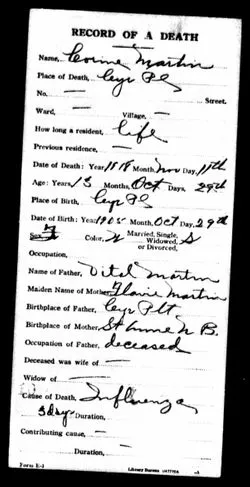 RECORD OF A DEATH
Name, Corine Martin
Place of Death, Cyr Pl
No. — Street.
Ward, — Village, —
How long a resident, life
Previous residence, —
Date of Death: Year, 1918 Month, Nov Day, 11th
Age: Years, 13 Months, Oct Days, 29th
Place of Birth, Cyr Pl
Date of Birth: Year 1905 Month, Oct Day, 29th
Sex, F Color, W Married, Single, Widowed, or Divorced, S
Occupation,
Name of Father, Vital Martin
Maiden Name of Mother, Martin
Birthplace of Father, Cyr Plt.
Birthplace of Mother, St Anne N B.
Occupation of Father, deceased
Deceased was wife of —
Widow of —
Cause of Death, Influenza
3 days Duration,
Contributing cause, —
Duration, —
Form E-1 Library Bureau